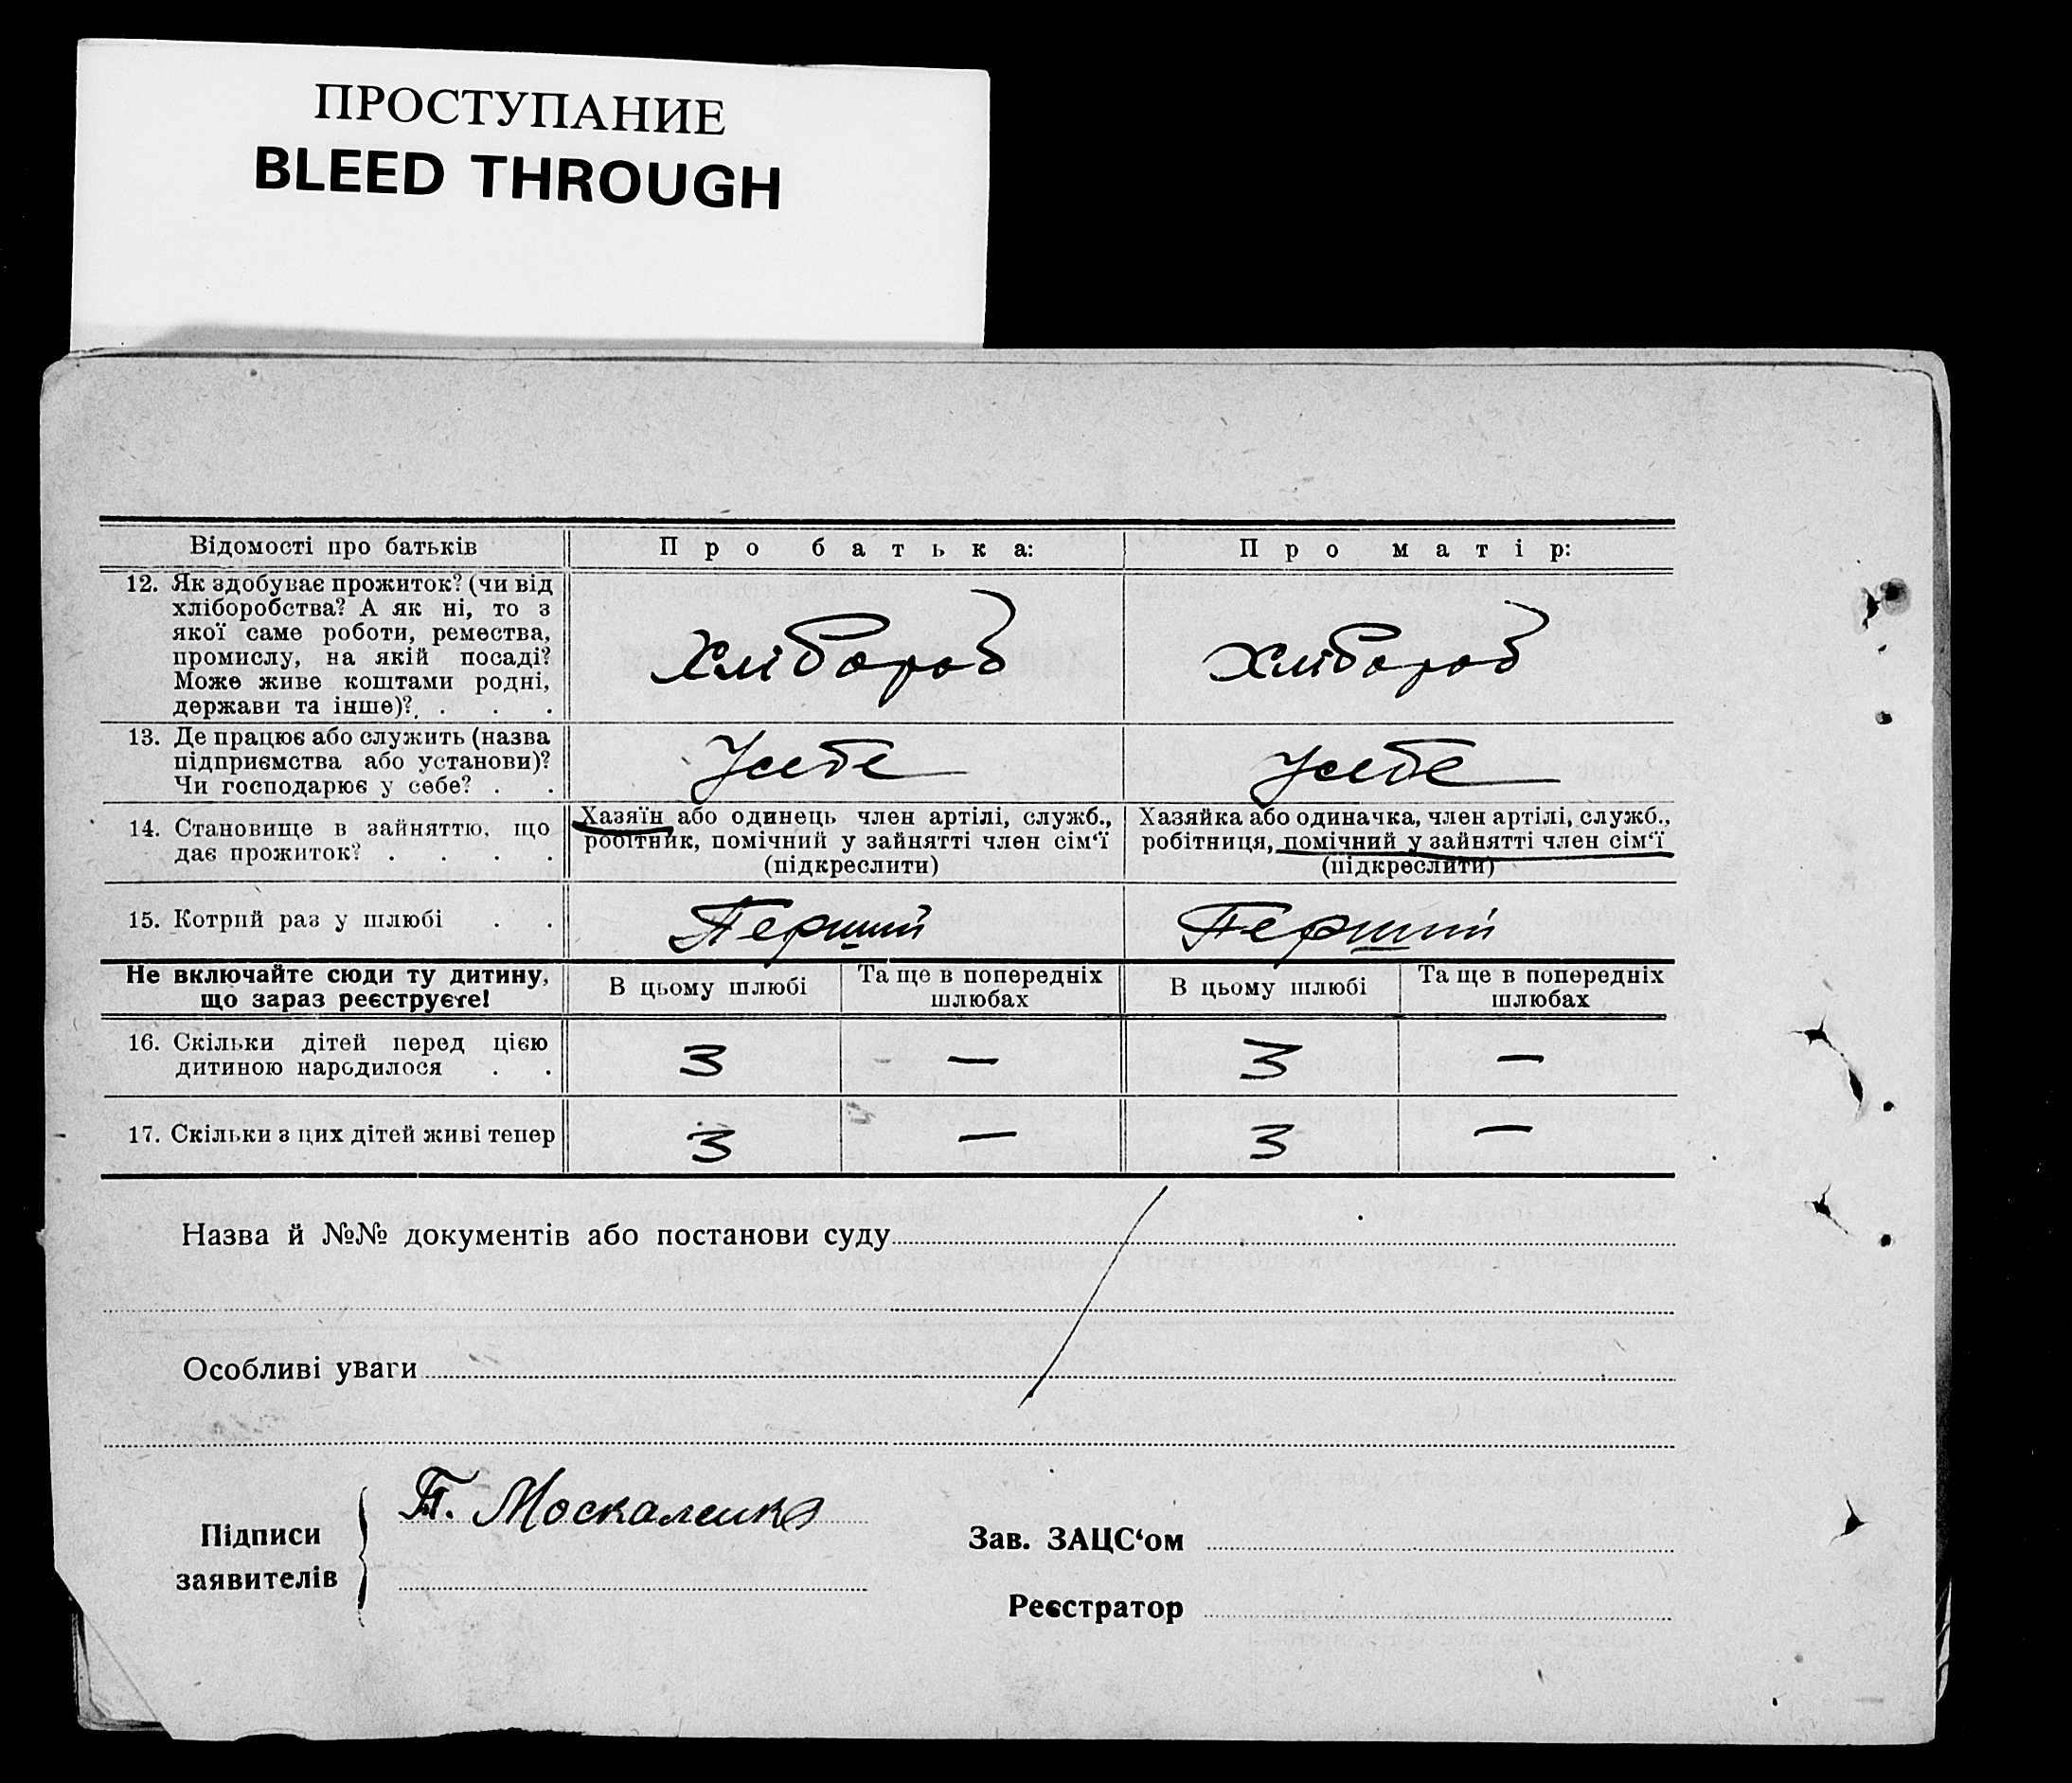 ПРОСТУПАНИЕ
BLEED THROUGH
Відомості про батьків
Про батька:
Про матір:
12. Як здобуває прожиток? (чи від
хліборобства? А як ні, то з
якої саме роботи, ремества,
промислу, на якій посаді?
Може живе коштами родні,
держави та інше)? . . .
Хлібороб
Хлібороб
13. Де працює або служить (назва
підприємства або установи)?
Чи господарює у себе? . .
У себе
У себе
14. Становище в зайняттю, що
дає прожиток? . . . .
Хазяїн або одинець член артілі, служб.,
робітник, помічний у зайнятті член сім‘ї
(підкреслити)
Хазяйка або одиначка, член артілі, служб.,
робітниця, помічний у зайнятті член сім‘ї
(підкреслити)
15. Котрий раз у шлюбі . .
Перший
Перший
Не включайте сюди ту дитину,
що зараз реєструєте!
В цьому шлюбі
Та ще в попередніх
шлюбах
В цьому шлюбі
Та ще в попередніх
шлюбах
16. Скільки дітей перед цією
дитиною народилося . .
3 — 3 —
17. Скільки з цих дітей живі тепер
3 — 3 —
Назва й №№ документів або постанови суду
Особливі уваги
Підписи
заявителів
П. Москаленко
Зав. ЗАЦС‘ом
Реєстратор